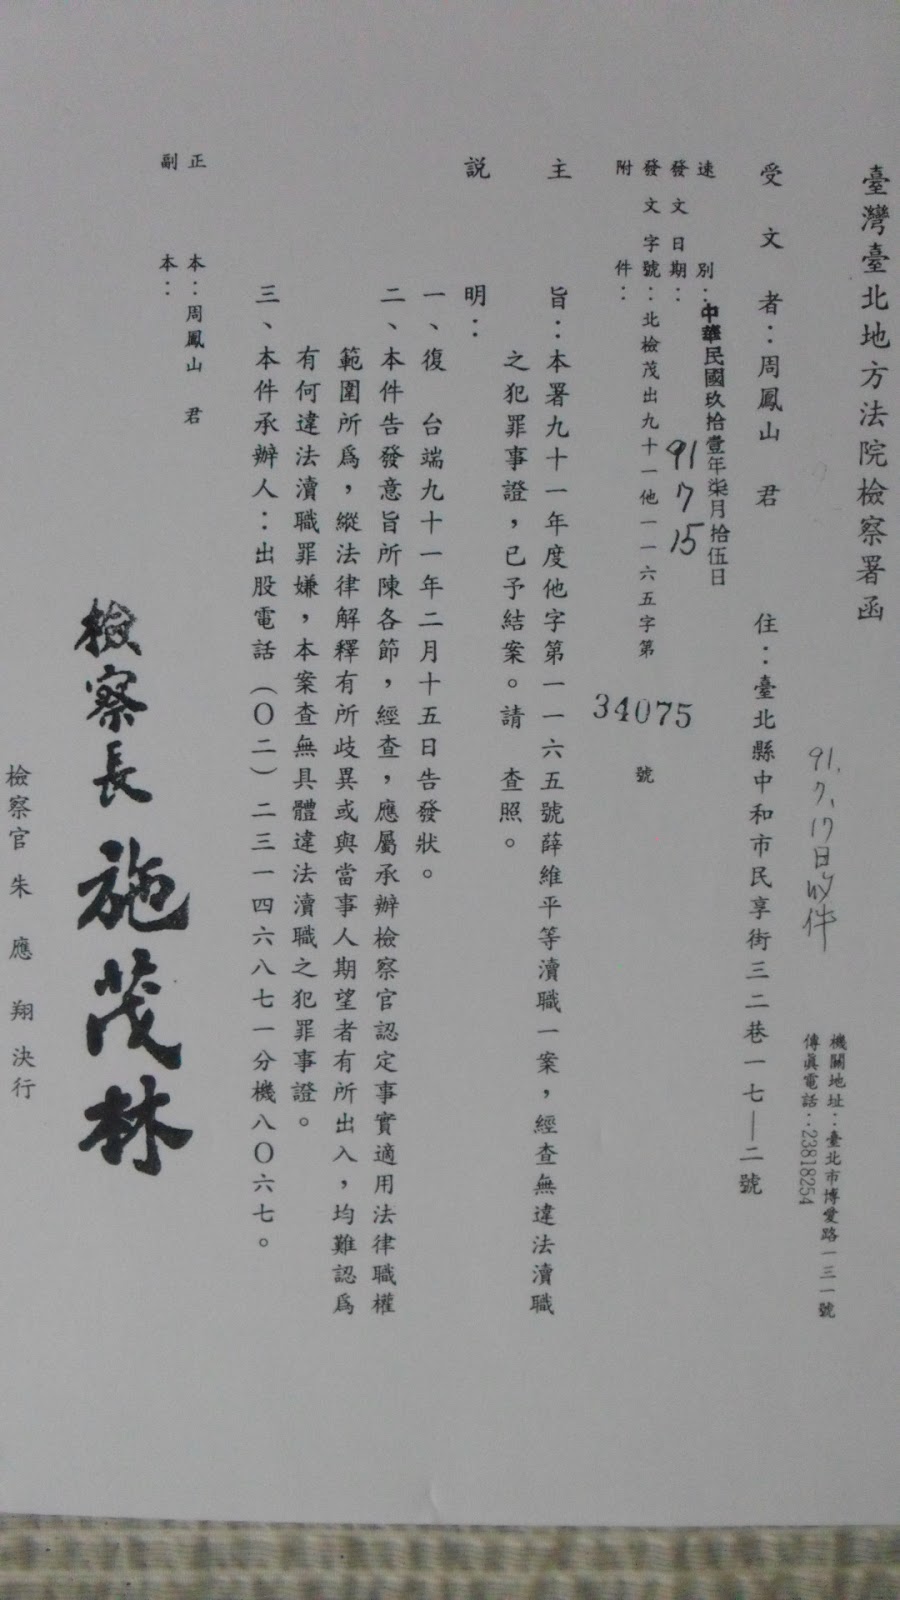 臺灣臺北地方法院檢察署函
機關地址：臺北市博愛路一三一號
傳真電話：23818254
91.7.17日收件
受文者：周鳳山 君 住：臺北縣中和市民享街三二巷一七—二號
速別：
發文日期：中華民國玖拾壹年柒月拾伍日
91 7 15
發文字號：北檢茂出九十一他一一六五字第34075號
附件：
主旨：本署九十一年度他字第一一六五號薛維平等瀆職一案，經查無違法瀆職
之犯罪事證，已予結案。請 查照。
說明：
一、復 台端九十一年二月十五日告發狀。
二、本件告發意旨所陳各節，經查，應屬承辦檢察官認定事實適用法律職權
範圍所為，縱法律解釋有所歧異或與當事人期望者有所出入，均難認為
有何違法瀆職罪嫌，本案查無具體違法瀆職之犯罪事證。
三、本件承辦人：出股電話（〇二）二三一四六八七一分機八〇六七。
正本：周鳳山 君
副本：
檢察長 施茂林
檢察官 朱應翔決行